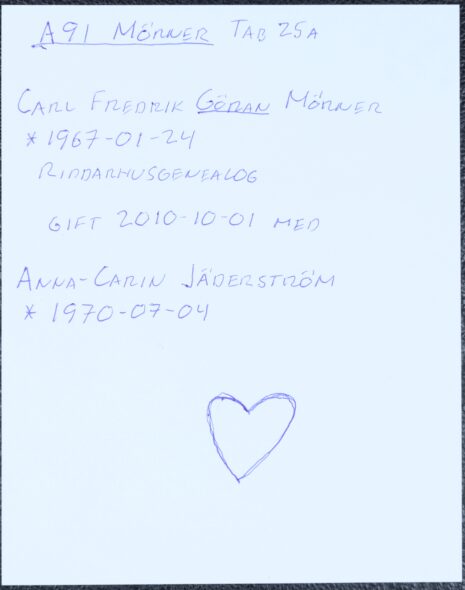 A91 MÖRNER TAB 25A
CARL FREDRIK GÖRAN MÖRNER
* 1967-01-24
RIDDARHUSGENEALOG
GIFT 2010-10-01 MED
ANNA-CARIN JÄDERSTRÖM
* 1970-07-04